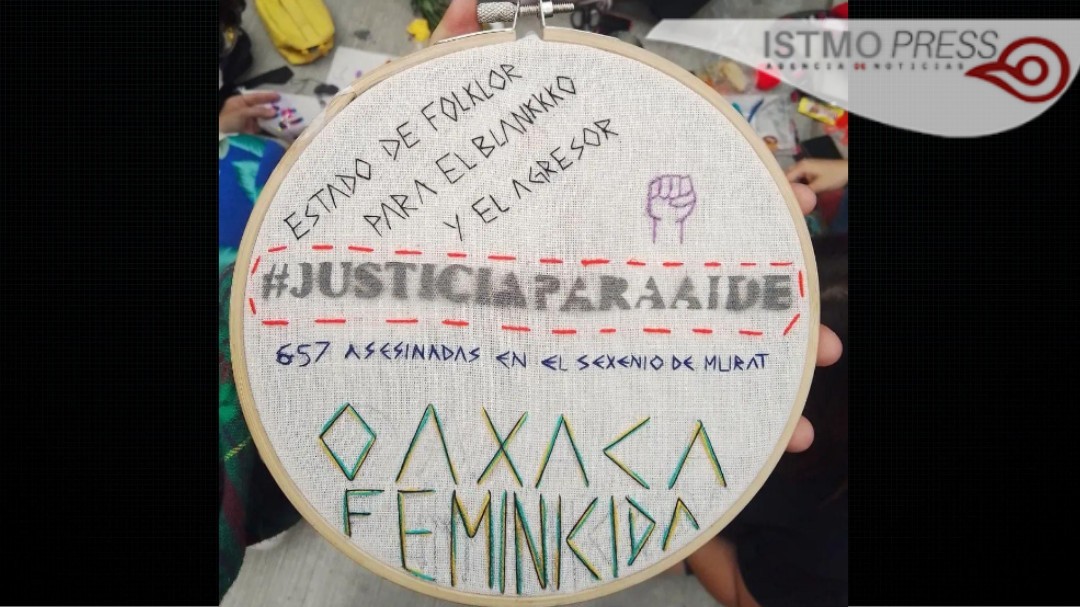 ISTMO PRESS
AGENCIA DE NOTICIAS
ESTADO DE FOLKLOR
PARA EL BLANKKKO
Y EL AGRESOR
#JUSTICIAPARAAIDE
657 ASESINADAS EN EL SEXENIO DE MURAT
OAXACA
FEMINICIDA